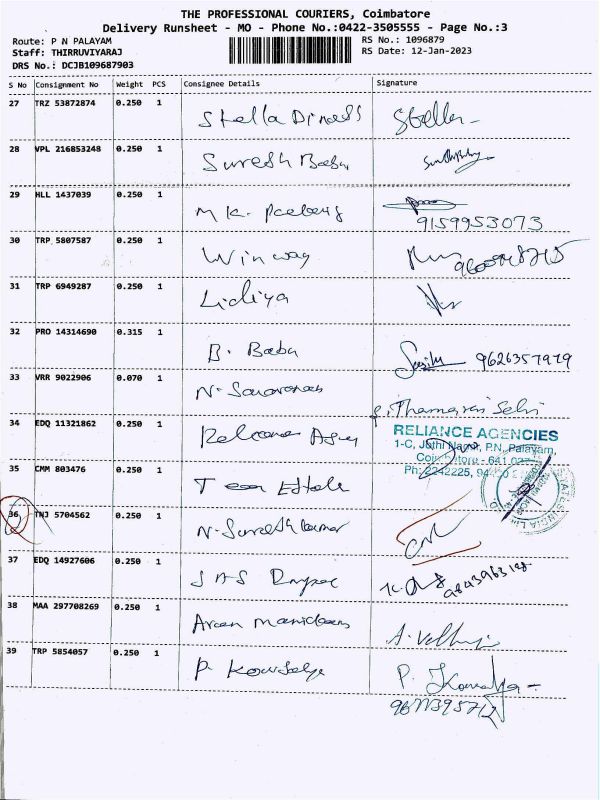 THE PROFESSIONAL COURIERS, Coimbatore
Delivery Runsheet - MO - Phone No.:0422-3505555 - Page No.:3
Route: P N PALAYAM
RS No.: 1096879
Staff: THIRRUVIYARAJ
RS Date: 12-Jan-2023
DRS No.: DCJB109687903
S No Consignment No Weight PCS Consignee Details Signature
27 TRZ 53872874 0.250 1 Stella Stella
28 VPL 216853248 0.250 1 Suresh Babu
29 HLL 1437039 0.250 1 M K.
9159953073
30 TRP 5807587 0.250 1 Winway
31 TRP 6949287 0.250 1 Lidiya
32 PRO 14314690 0.315 1 B. Babu 9626357979
33 VRR 9022906 0.070 1 N. Saravanan P. Thamarai Selvi
34 EDQ 11321862 0.250 1 Reliance Agency
RELIANCE AGENCIES
1-C, Jothi Nagar, P.N. Palayam,
Coimbatore - 641 037
Ph: 2242225,
35 CMM 803476 0.250 1
36 TNJ 5704562 0.250 1 N. Suresh kumar
37 EDQ 14927606 0.250 1
38 MAA 297708269 0.250 1 A.
39 TRP 5854057 0.250 1 P. Kowsalya P. Kowsalya